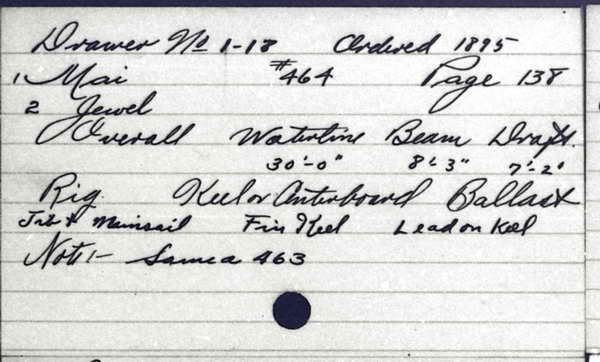 Drawer No 1-18 Ordered 1895
1 Mai #464 Page 138
2 Jewel
Overall Waterline Beam Draft.
30'-0" 8'-3" 7'-2"
Rig Keel or Centerboard Ballast
Jib & Mainsail Fin Keel Lead on Keel
Note:- Same as 463